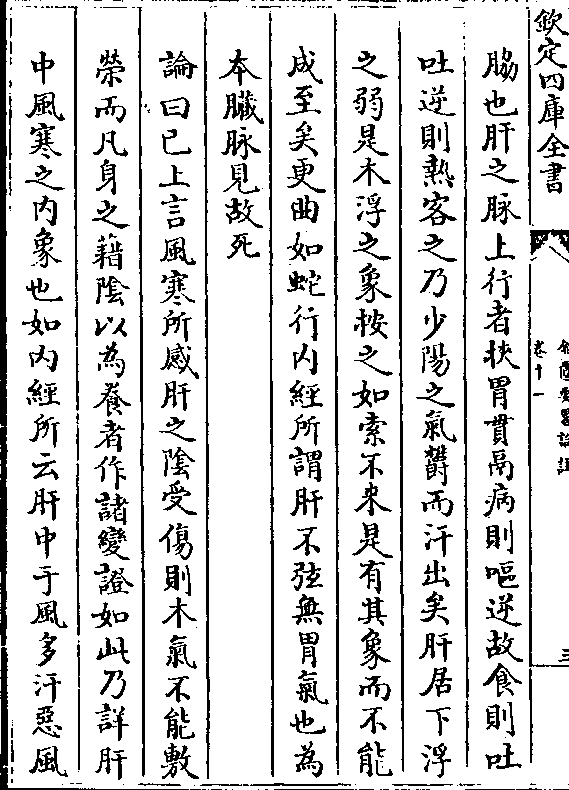 欽定四庫全書
金匱要略論註
卷十一
三
脇也肝之脉上行者挾胃貫鬲病則嘔逆故食則吐
吐逆則熱客之乃少陽之氣欝而汗出矣肝居下浮
之弱是木浮之象按之如索不来是有其象而不能
成至矣更曲如蛇行内經所謂肝不弦無胃氣也為
本臟脉見故死
論曰已上言風寒所感肝之陰受傷則木氣不能敷
榮而凡身之藉陰以為養者作諸變證如此乃詳肝
中風寒之内象也如内經所云肝中于風多汗惡風